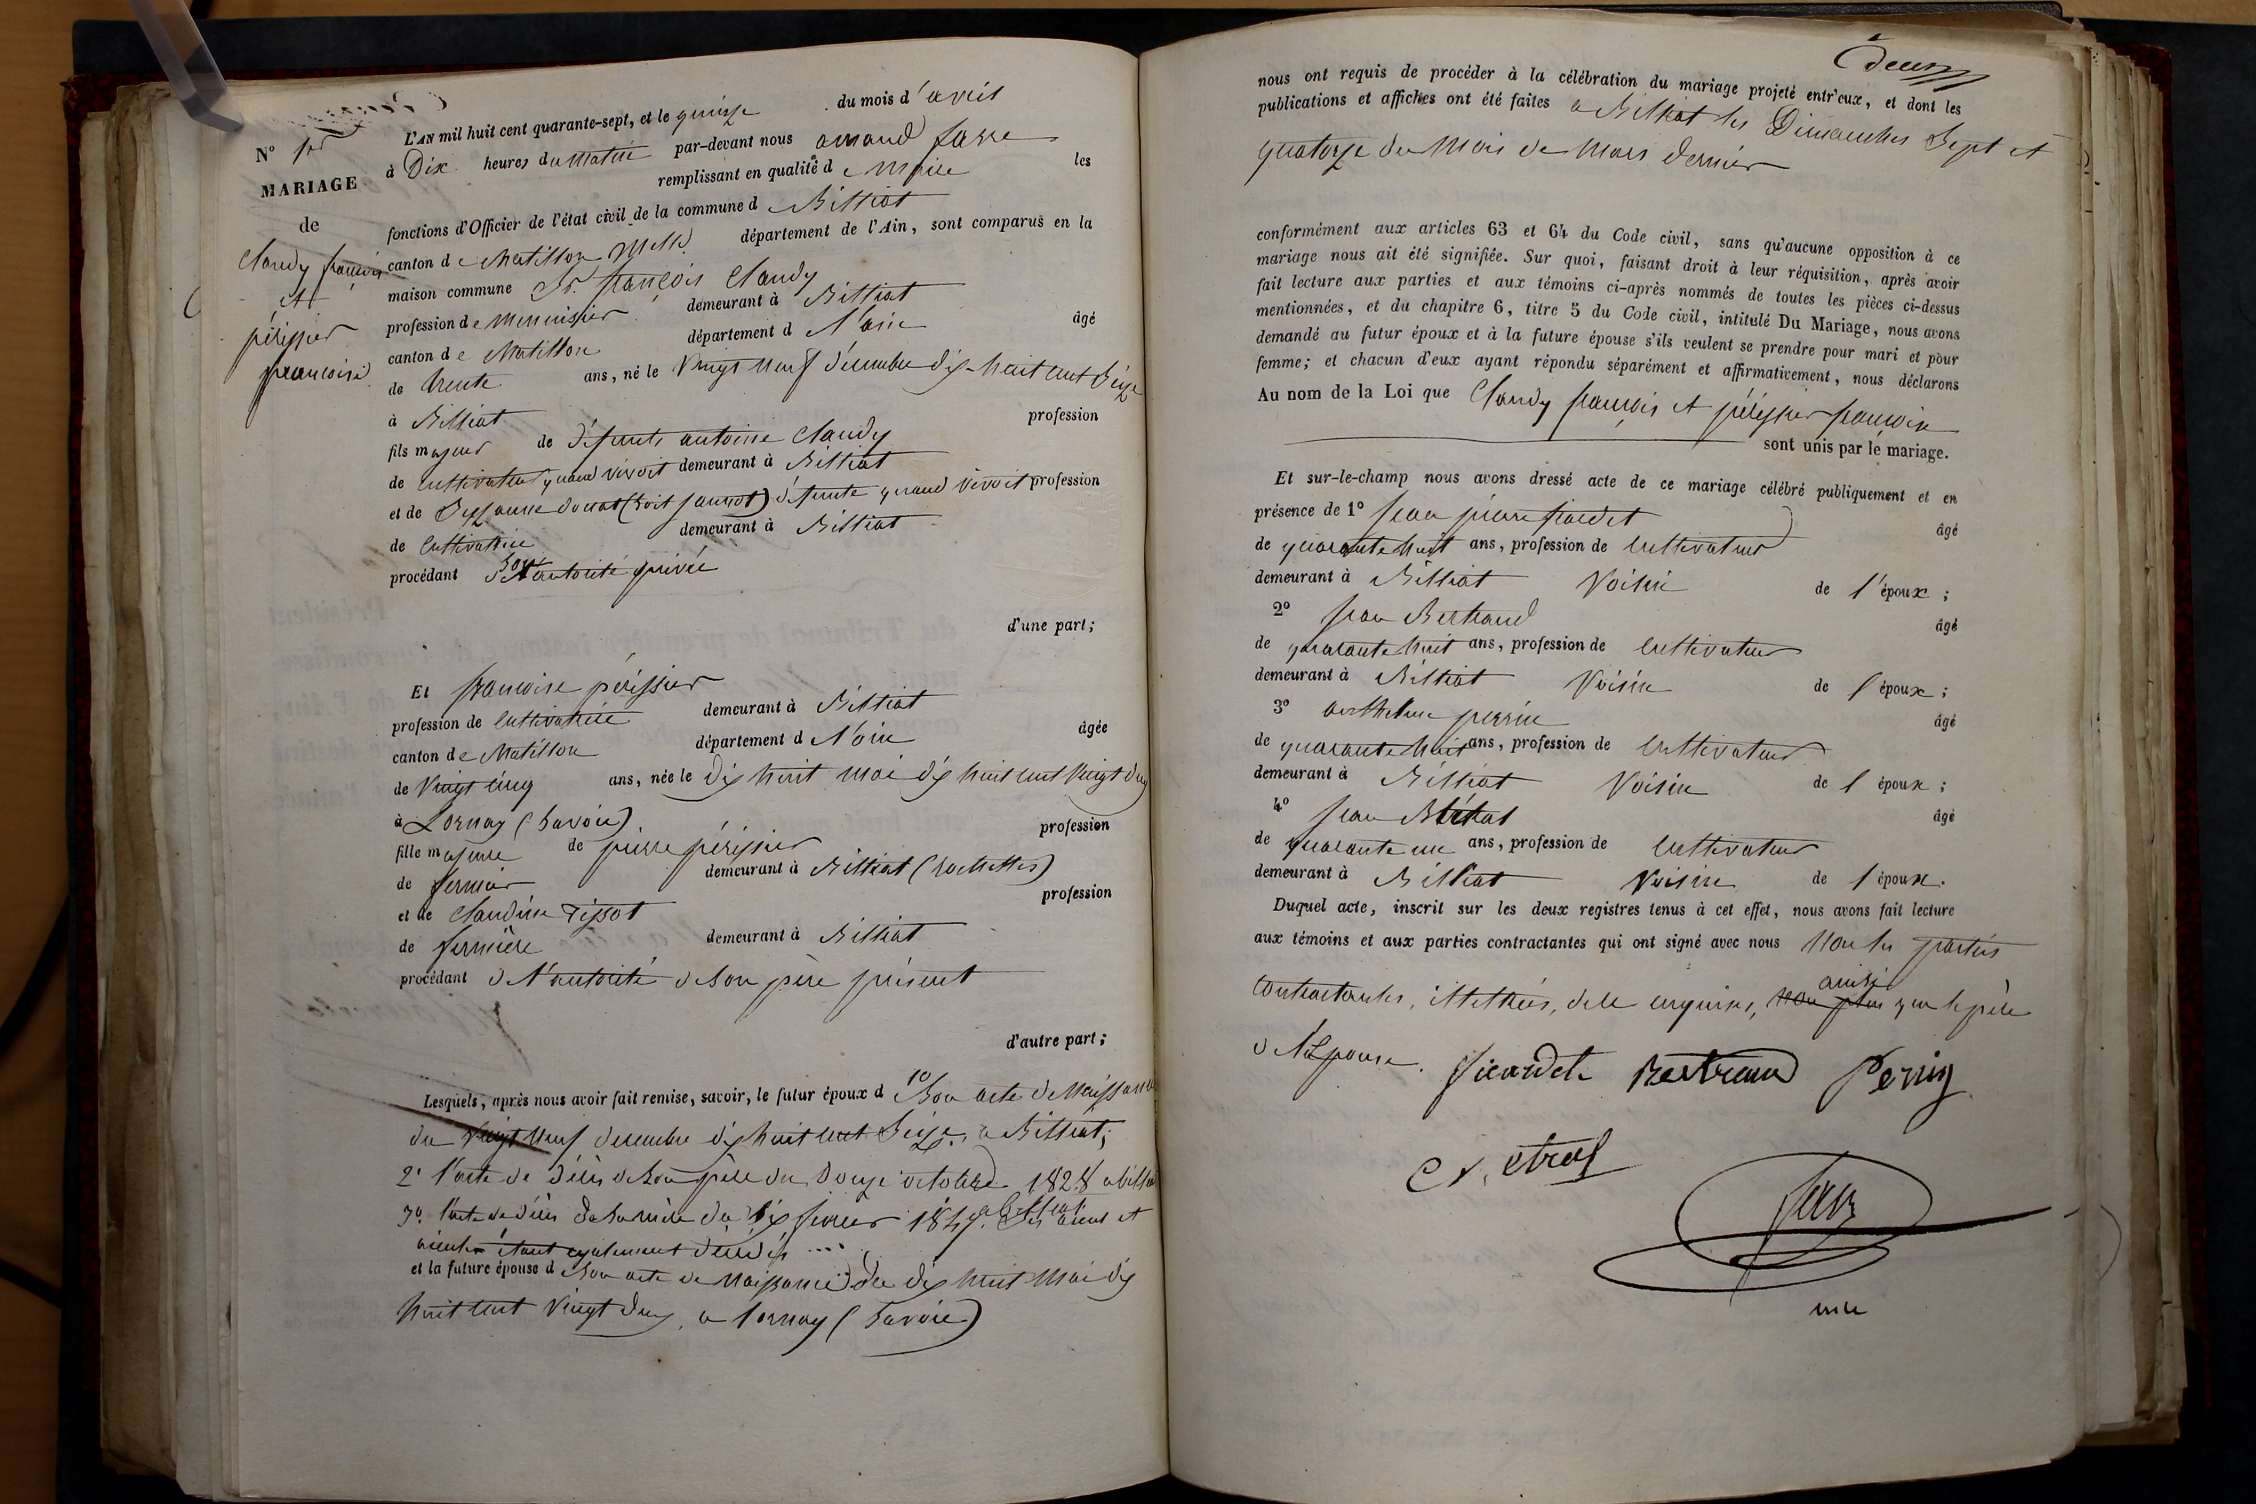 L'AN mil huit cent quarante-sept, et le quinze du mois d'avril
à Dix heures du matin par-devant nous amand favre
remplissant en qualité de maire les
fonctions d'Officier de l'état civil de la commune d Billiat
canton de Chatillon Mlle. département de l'Ain, sont comparus en la
maison commune Sr. françois Claudy
profession de menuisier demeurant à Billiat
canton de Chatillon département d l'ain âgé
de trente ans, né le vingt neuf décembre dix-huit cent seize
à Billiat
fils majeur de défunts antoine Claudy profession
de cultivateur quand vivoit demeurant à Billiat
et de Suzanne ducrat (soit jacquot) défunte quand vivoit profession
de cultivatrice demeurant à Billiat
procédant d'autorité privée
d'une part;
Et françoise périssier
profession de cultivatrice demeurant à Billiat
canton de Chatillon département d l'ain âgée
de vingt cinq ans, née le dix huit mai dix huit cent vingt deux
à Lornay (Savoie)
fille majeure de pierre périssier profession
de fermier demeurant à Billiat (rochettes)
et de Claudine Tissot profession
de fermière demeurant à Billiat
procédant d l'autorité de son père présent
d'autre part;
Lesquels, après nous avoir fait remise, savoir, le futur époux d 1º son acte de naissance
du vingt neuf decembre dix huit cent seize, a Billiat;
2º l'acte de décès de son père du douze octobre 1828 a billiat
3º l'acte de décès de sa mère du dix fevrier 1847 a Billiat. Ses aieux et
aieules étant également décédés ....
et la future épouse d son acte de naissance du dix huit mai dix
huit cent vingt deux, a Lornay (Savoie)
Nº 1er
MARIAGE
de
Claudy françois
et
périssier
françoise
deux
nous ont requis de procéder à la célébration du mariage projeté entr'eux, et dont les
publications et affiches ont été faites a Billiat les Dimanches Sept et
quatorze du mois de mars dernier
conformément aux articles 63 et 64 du Code civil, sans qu'aucune opposition à ce
mariage nous ait été signifiée. Sur quoi, faisant droit à leur réquisition, après avoir
fait lecture aux parties et aux témoins ci-après nommés de toutes les pièces ci-dessus
mentionnées, et du chapitre 6, titre 5 du Code civil, intitulé Du Mariage, nous avons
demandé au futur époux et à la future épouse s'ils veulent se prendre pour mari et pour
femme; et chacun d'eux ayant répondu séparément et affirmativement, nous déclarons
Au nom de la Loi que Claudy françois et périssier françoise
sont unis par le mariage.
Et sur-le-champ nous avons dressé acte de ce mariage célébré publiquement et en
présence de 1º Jean pierre ficardet âgé
de quarante huit ans, profession de cultivateur
demeurant à Billiat voisin de l'époux;
2º Jean Bertrand âgé
de quarante huit ans, profession de cultivateur
demeurant à Billiat voisin de l'époux;
3º anthelme perrin âgé
de quarante huit ans, profession de cultivateur
demeurant à Billiat voisin de l'époux;
4º Jean âgé
de quarante un ans, profession de cultivateur
demeurant à Billiat voisin de l'époux.
Duquel acte, inscrit sur les deux registres tenus à cet effet, nous avons fait lecture
aux témoins et aux parties contractantes qui ont signé avec nous non les parties
contractantes, illettrées, de ce enquises, non plus ainsi que le père
de l'Epouse.
ficardet Bertrand Perrin
favre
mre